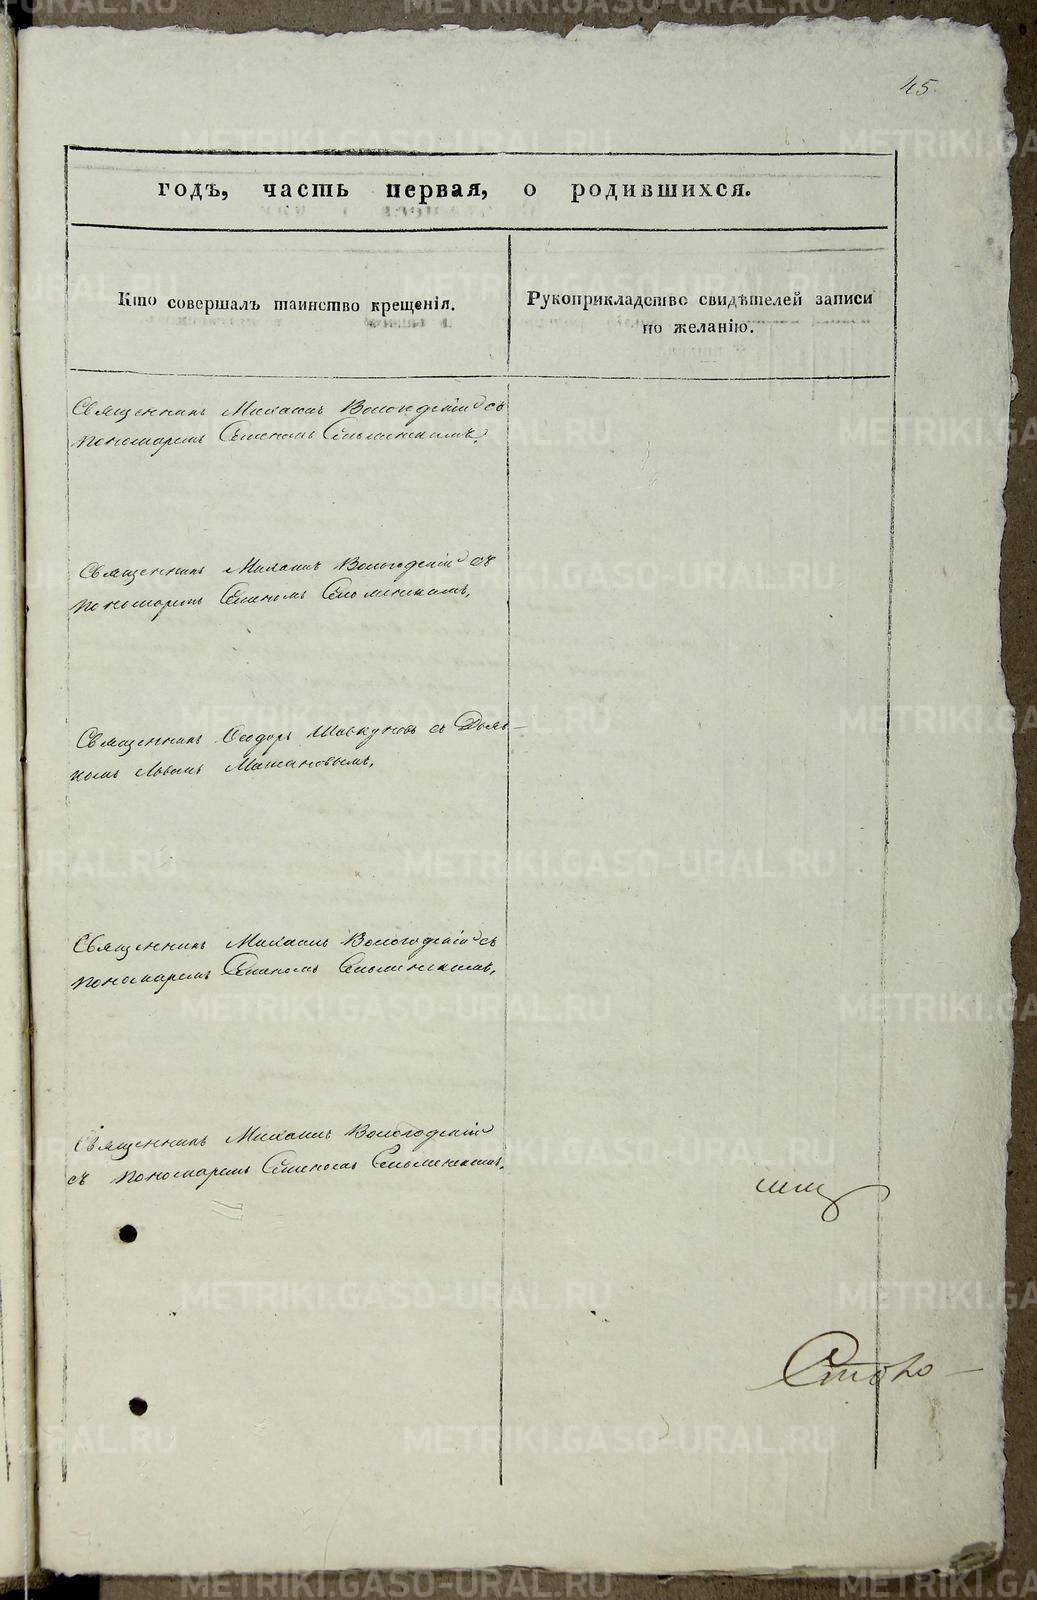 45.
годъ, часть первая, о родившихся.
Кто совершалъ таинство крещенія.
Рукоприкладство свидѣтелей записи
по желанію.
Священникъ Михаилъ Вологодскій съ
пономаремъ Семеномъ
Священникъ Михаилъ Вологодскій съ
пономаремъ Семеномъ
Священникъ Ѳеодоръ Шавкуновъ съ Дьяч-
комъ Львомъ
Священникъ Михаилъ Вологодскій съ
пономаремъ Семеномъ
Священникъ Михаилъ Вологодскій
съ пономаремъ Семеномъ
METRIKI.GASO-URAL.RU